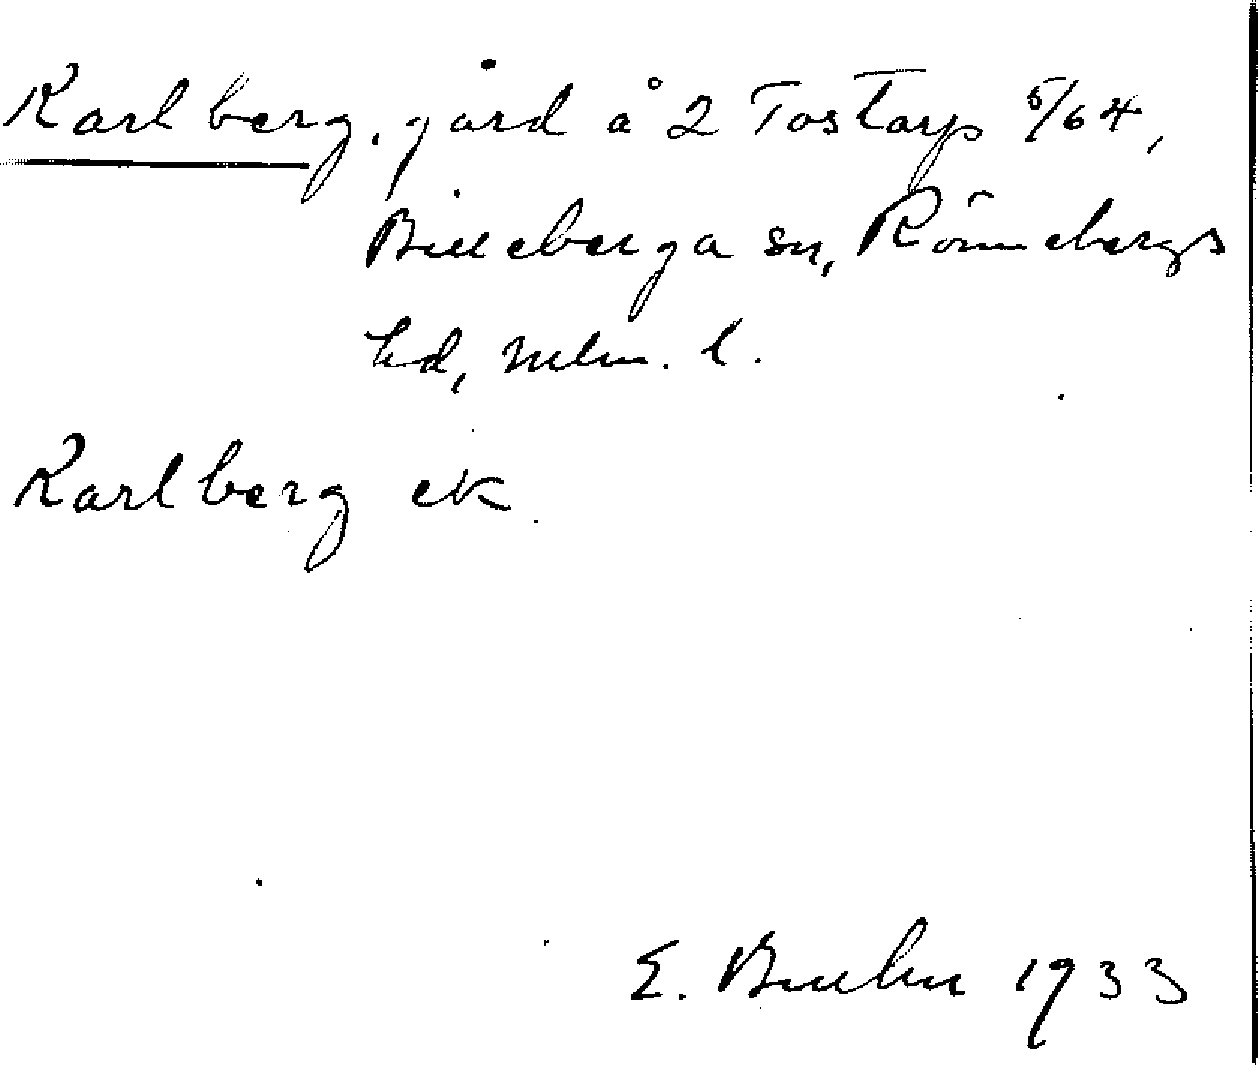 Karlberg, gård å 2 Tostarp 5/64,
Billeberga sn, Rönnebergs
hd, Mlm. l.
Karlberg ek
E. Bruhn 1933